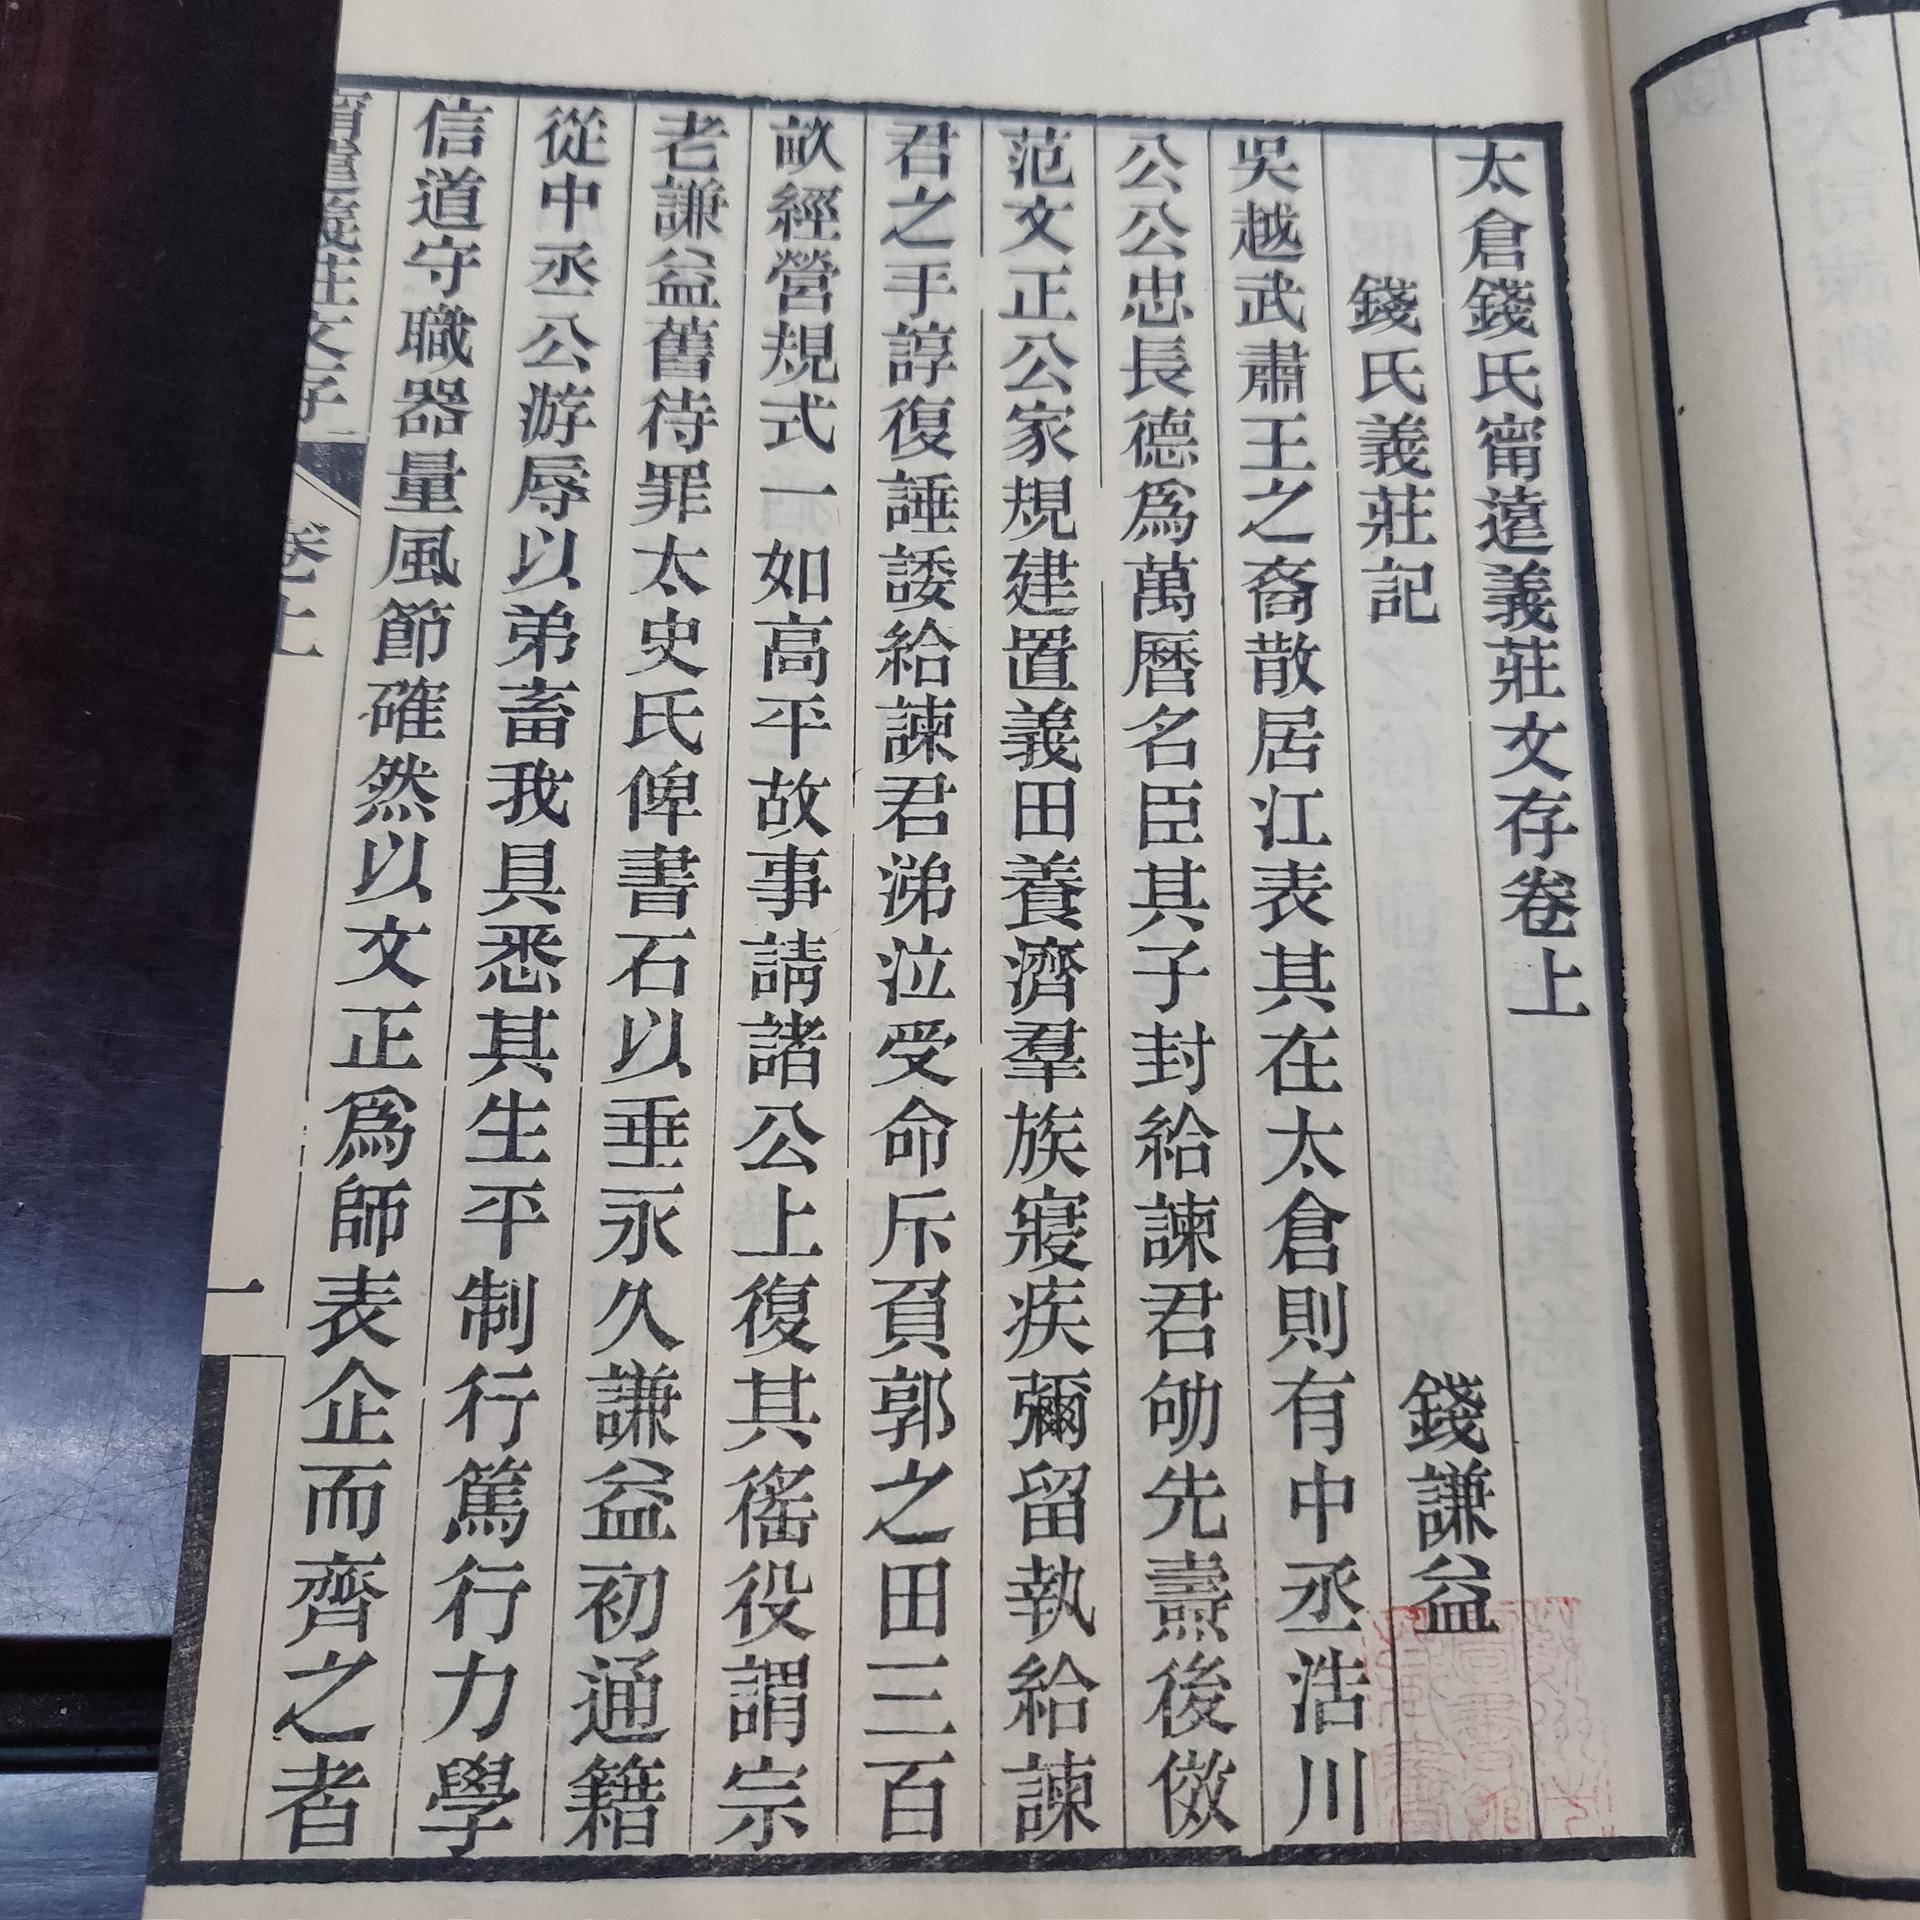 太倉錢氏甯遠義莊文存卷上
錢氏義莊記
錢謙益
吳越武肅王之裔散居江表其在太倉則有中丞浩川
公公忠長德爲萬曆名臣其子封給諫君劬先燾後倣
范文正公家規建置義田養濟羣族寢疾彌留執給諫
君之手諄復諈諉給諫君涕泣受命斥負郭之田三百
畝經營規式一如高平故事請諸公上復其徭役謂宗
老謙益舊待罪太史氏俾書石以垂永久謙益初通籍
從中丞公游辱以弟畜我具悉其生平制行篤行力學
信道守職器量風節確然以文正爲師表企而齊之者
甯遠義莊文存
卷上
一